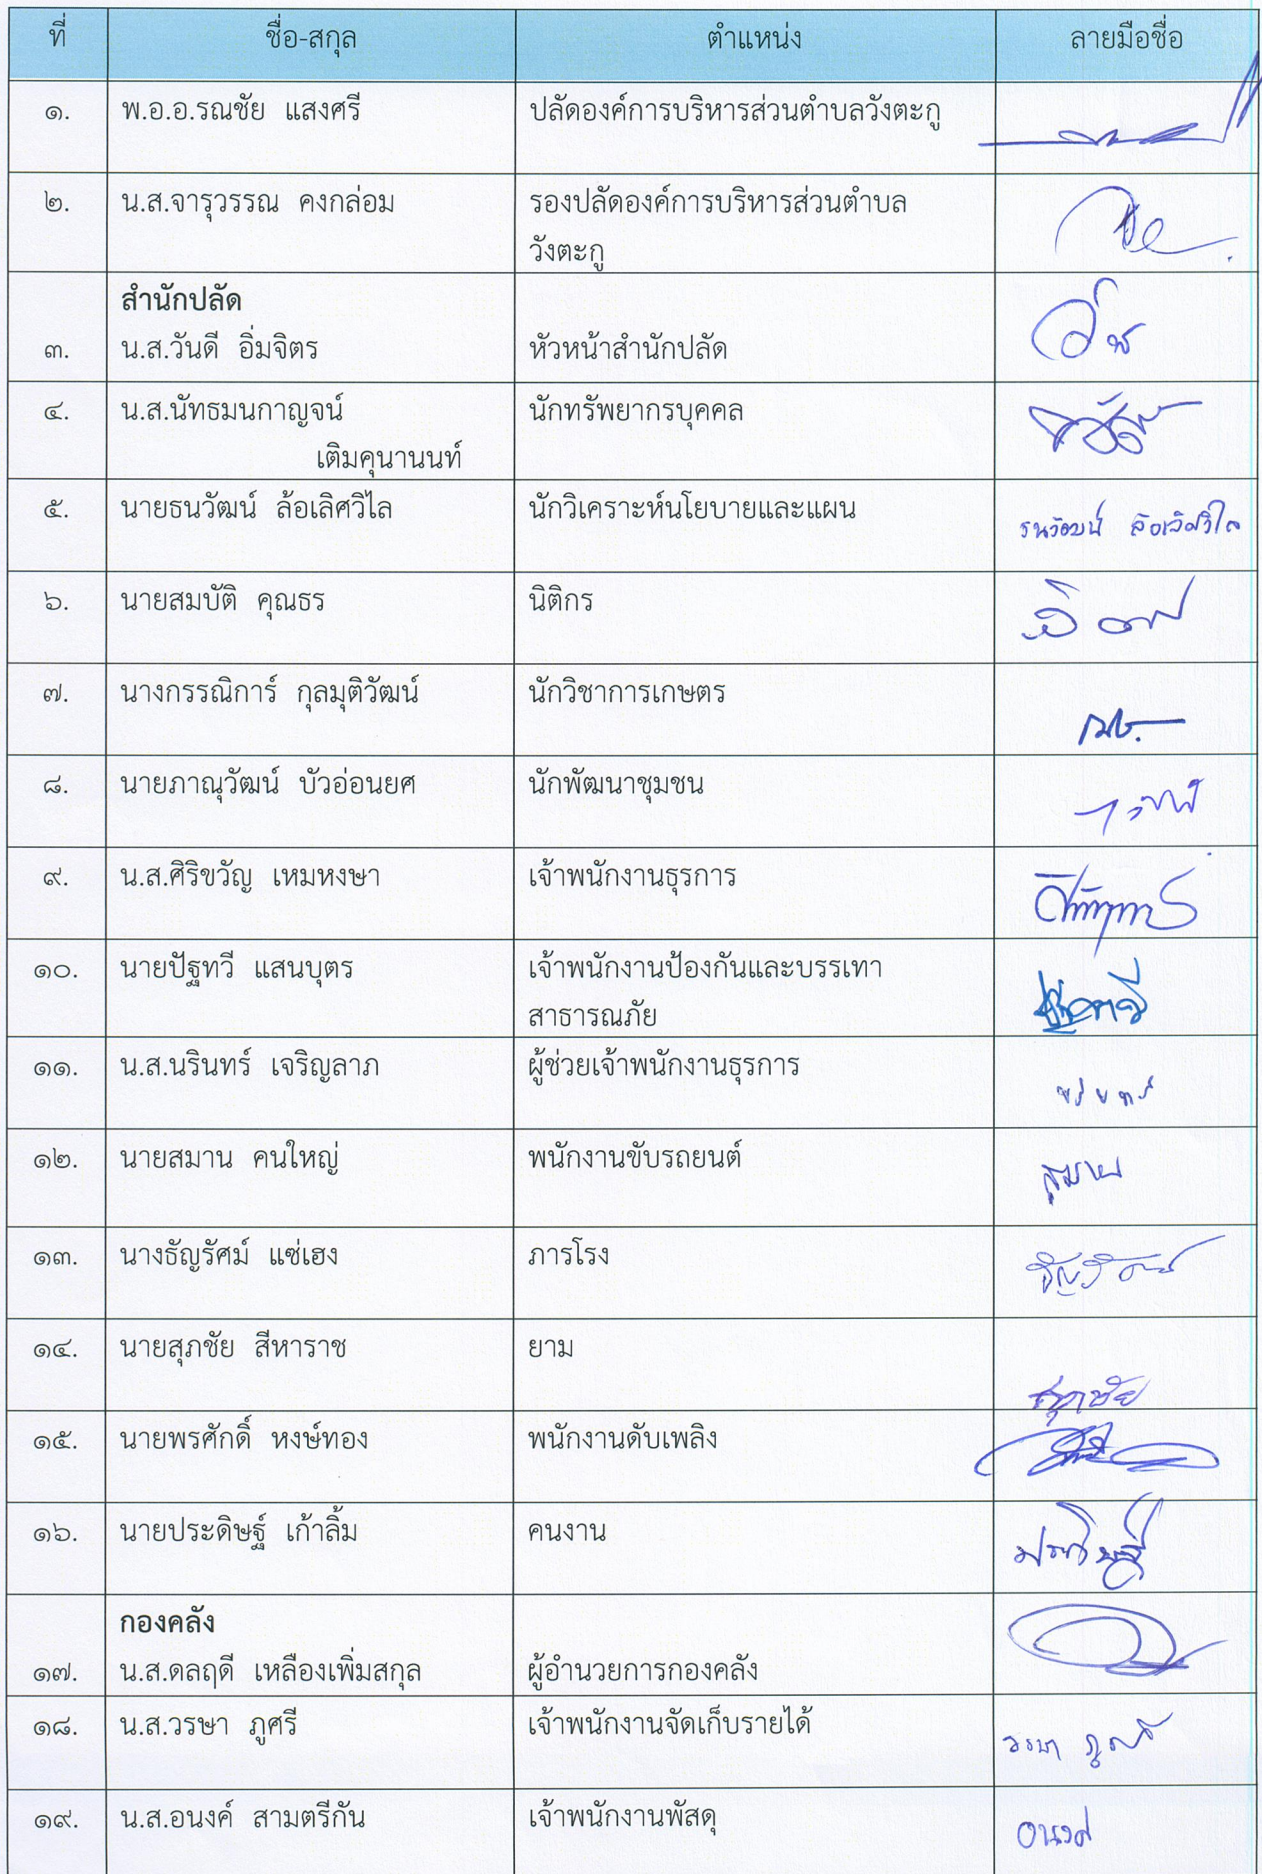 ที่ ชื่อ-สกุล ตำแหน่ง ลายมือชื่อ
๑. พ.อ.อ.รณชัย แสงศรี ปลัดองค์การบริหารส่วนตำบลวังตะกู
๒. น.ส.จารุวรรณ คงกล่อม รองปลัดองค์การบริหารส่วนตำบล
วังตะกู
สำนักปลัด
๓. น.ส.วันดี อิ่มจิตร หัวหน้าสำนักปลัด
๔. น.ส.นัทธมนกาญจน์ นักทรัพยากรบุคคล
เติมคุนานนท์
๕. นายธนวัฒน์ ล้อเลิศวิไล นักวิเคราะห์นโยบายและแผน ธนวัฒน์ ล้อเลิศวิไล
๖. นายสมบัติ คุณธร นิติกร
๗. นางกรรณิการ์ กุลมุติวัฒน์ นักวิชาการเกษตร
๘. นายภาณุวัฒน์ บัวอ่อนยศ นักพัฒนาชุมชน
๙. น.ส.ศิริขวัญ เหมหงษา เจ้าพนักงานธุรการ
๑๐. นายปัฐทวี แสนบุตร เจ้าพนักงานป้องกันและบรรเทา
สาธารณภัย
๑๑. น.ส.นรินทร์ เจริญลาภ ผู้ช่วยเจ้าพนักงานธุรการ นรินทร์
๑๒. นายสมาน คนใหญ่ พนักงานขับรถยนต์ สมาน
๑๓. นางธัญรัศม์ แซ่เฮง ภารโรง ธัญรัศม์
๑๔. นายสุภชัย สีหาราช ยาม สุภชัย
๑๕. นายพรศักดิ์ หงษ์ทอง พนักงานดับเพลิง
๑๖. นายประดิษฐ์ เก้าลิ้ม คนงาน ประดิษฐ์
กองคลัง
๑๗. น.ส.ดลฤดี เหลืองเพิ่มสกุล ผู้อำนวยการกองคลัง
๑๘. น.ส.วรษา ภูศรี เจ้าพนักงานจัดเก็บรายได้ วรษา ภูศรี
๑๙. น.ส.อนงค์ สามตรีกัน เจ้าพนักงานพัสดุ อนงค์